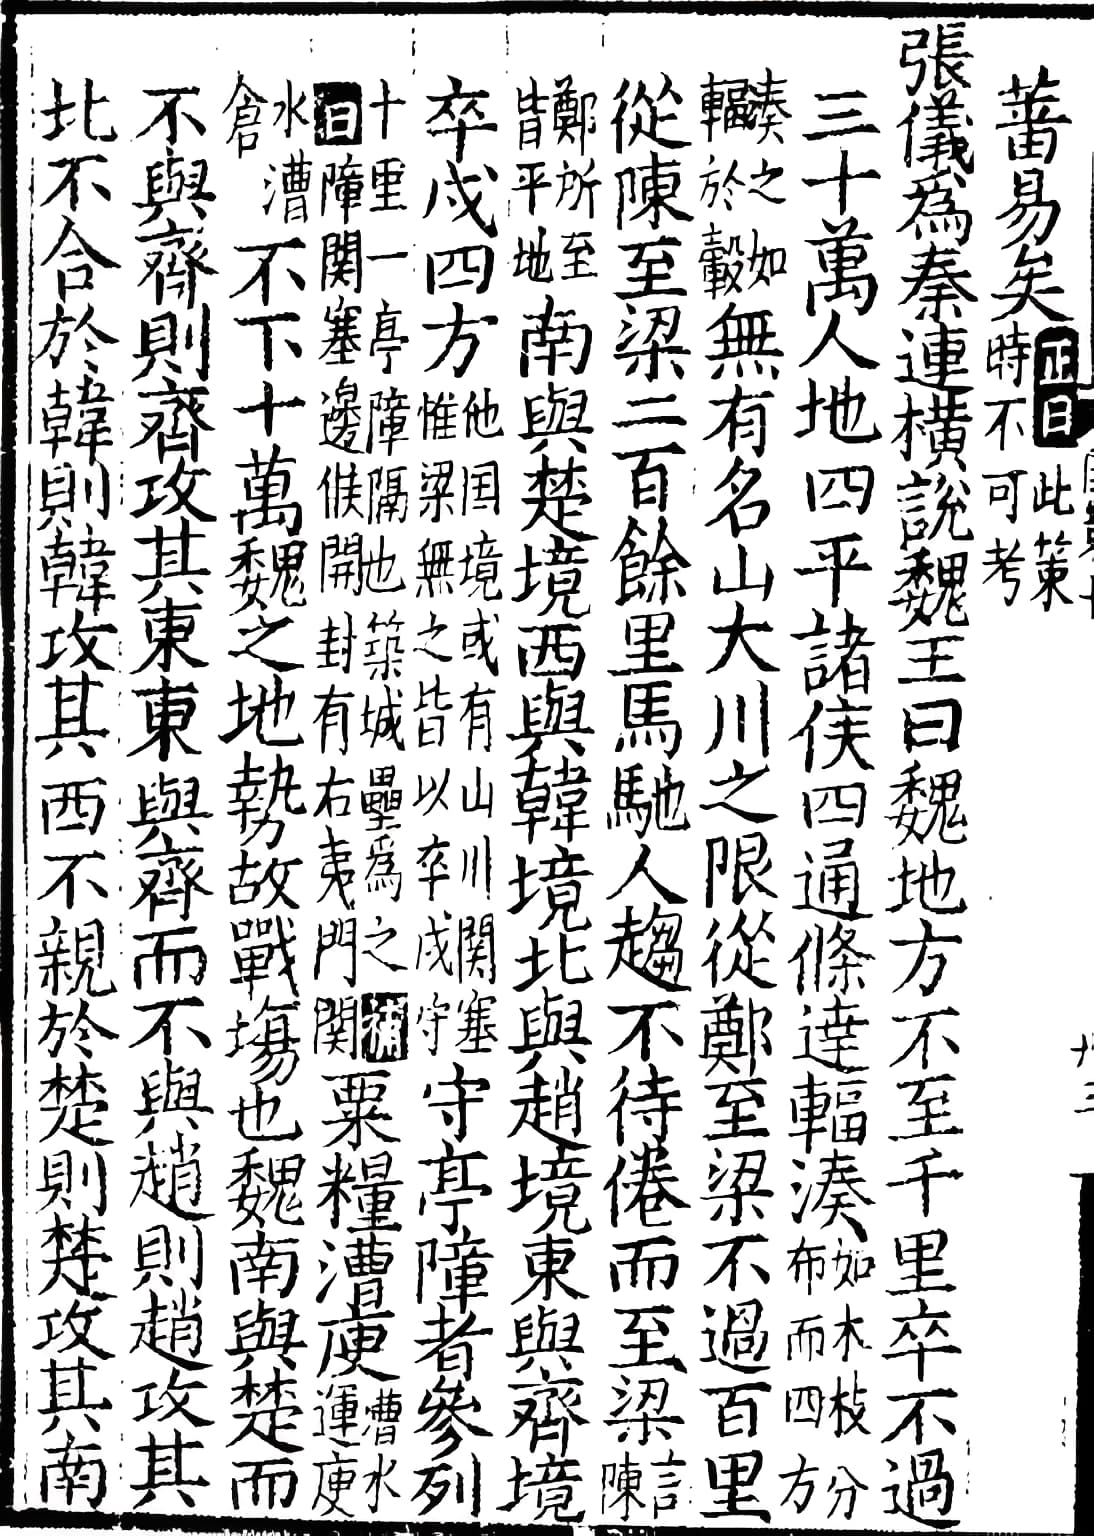 蕃易矣正曰此策時不可考
張儀爲秦連橫說魏王曰魏地方不至千里卒不過
三十萬人地四平諸侯四通條達輻湊如木枝分布而四方
湊之如輻於轂無有名山大川之限從鄭至梁不過百里
從陳至梁二百餘里馬馳人趨不待倦而至梁言陳
鄭所至皆平地南與楚境西與韓境北與趙境東與齊境
卒戍四方他国境或有山川関塞惟梁無之皆以卒戍守守亭障者參列
十里一亭障隔也築城壘爲之補曰障関塞邊候開封有右夷門関粟糧漕庾漕水運庾
水漕倉不下十萬魏之地勢故戰場也魏南與楚而
不與齊則齊攻其東東與齊而不與趙則趙攻其
北不合於韓則韓攻其西不親於楚則楚攻其南